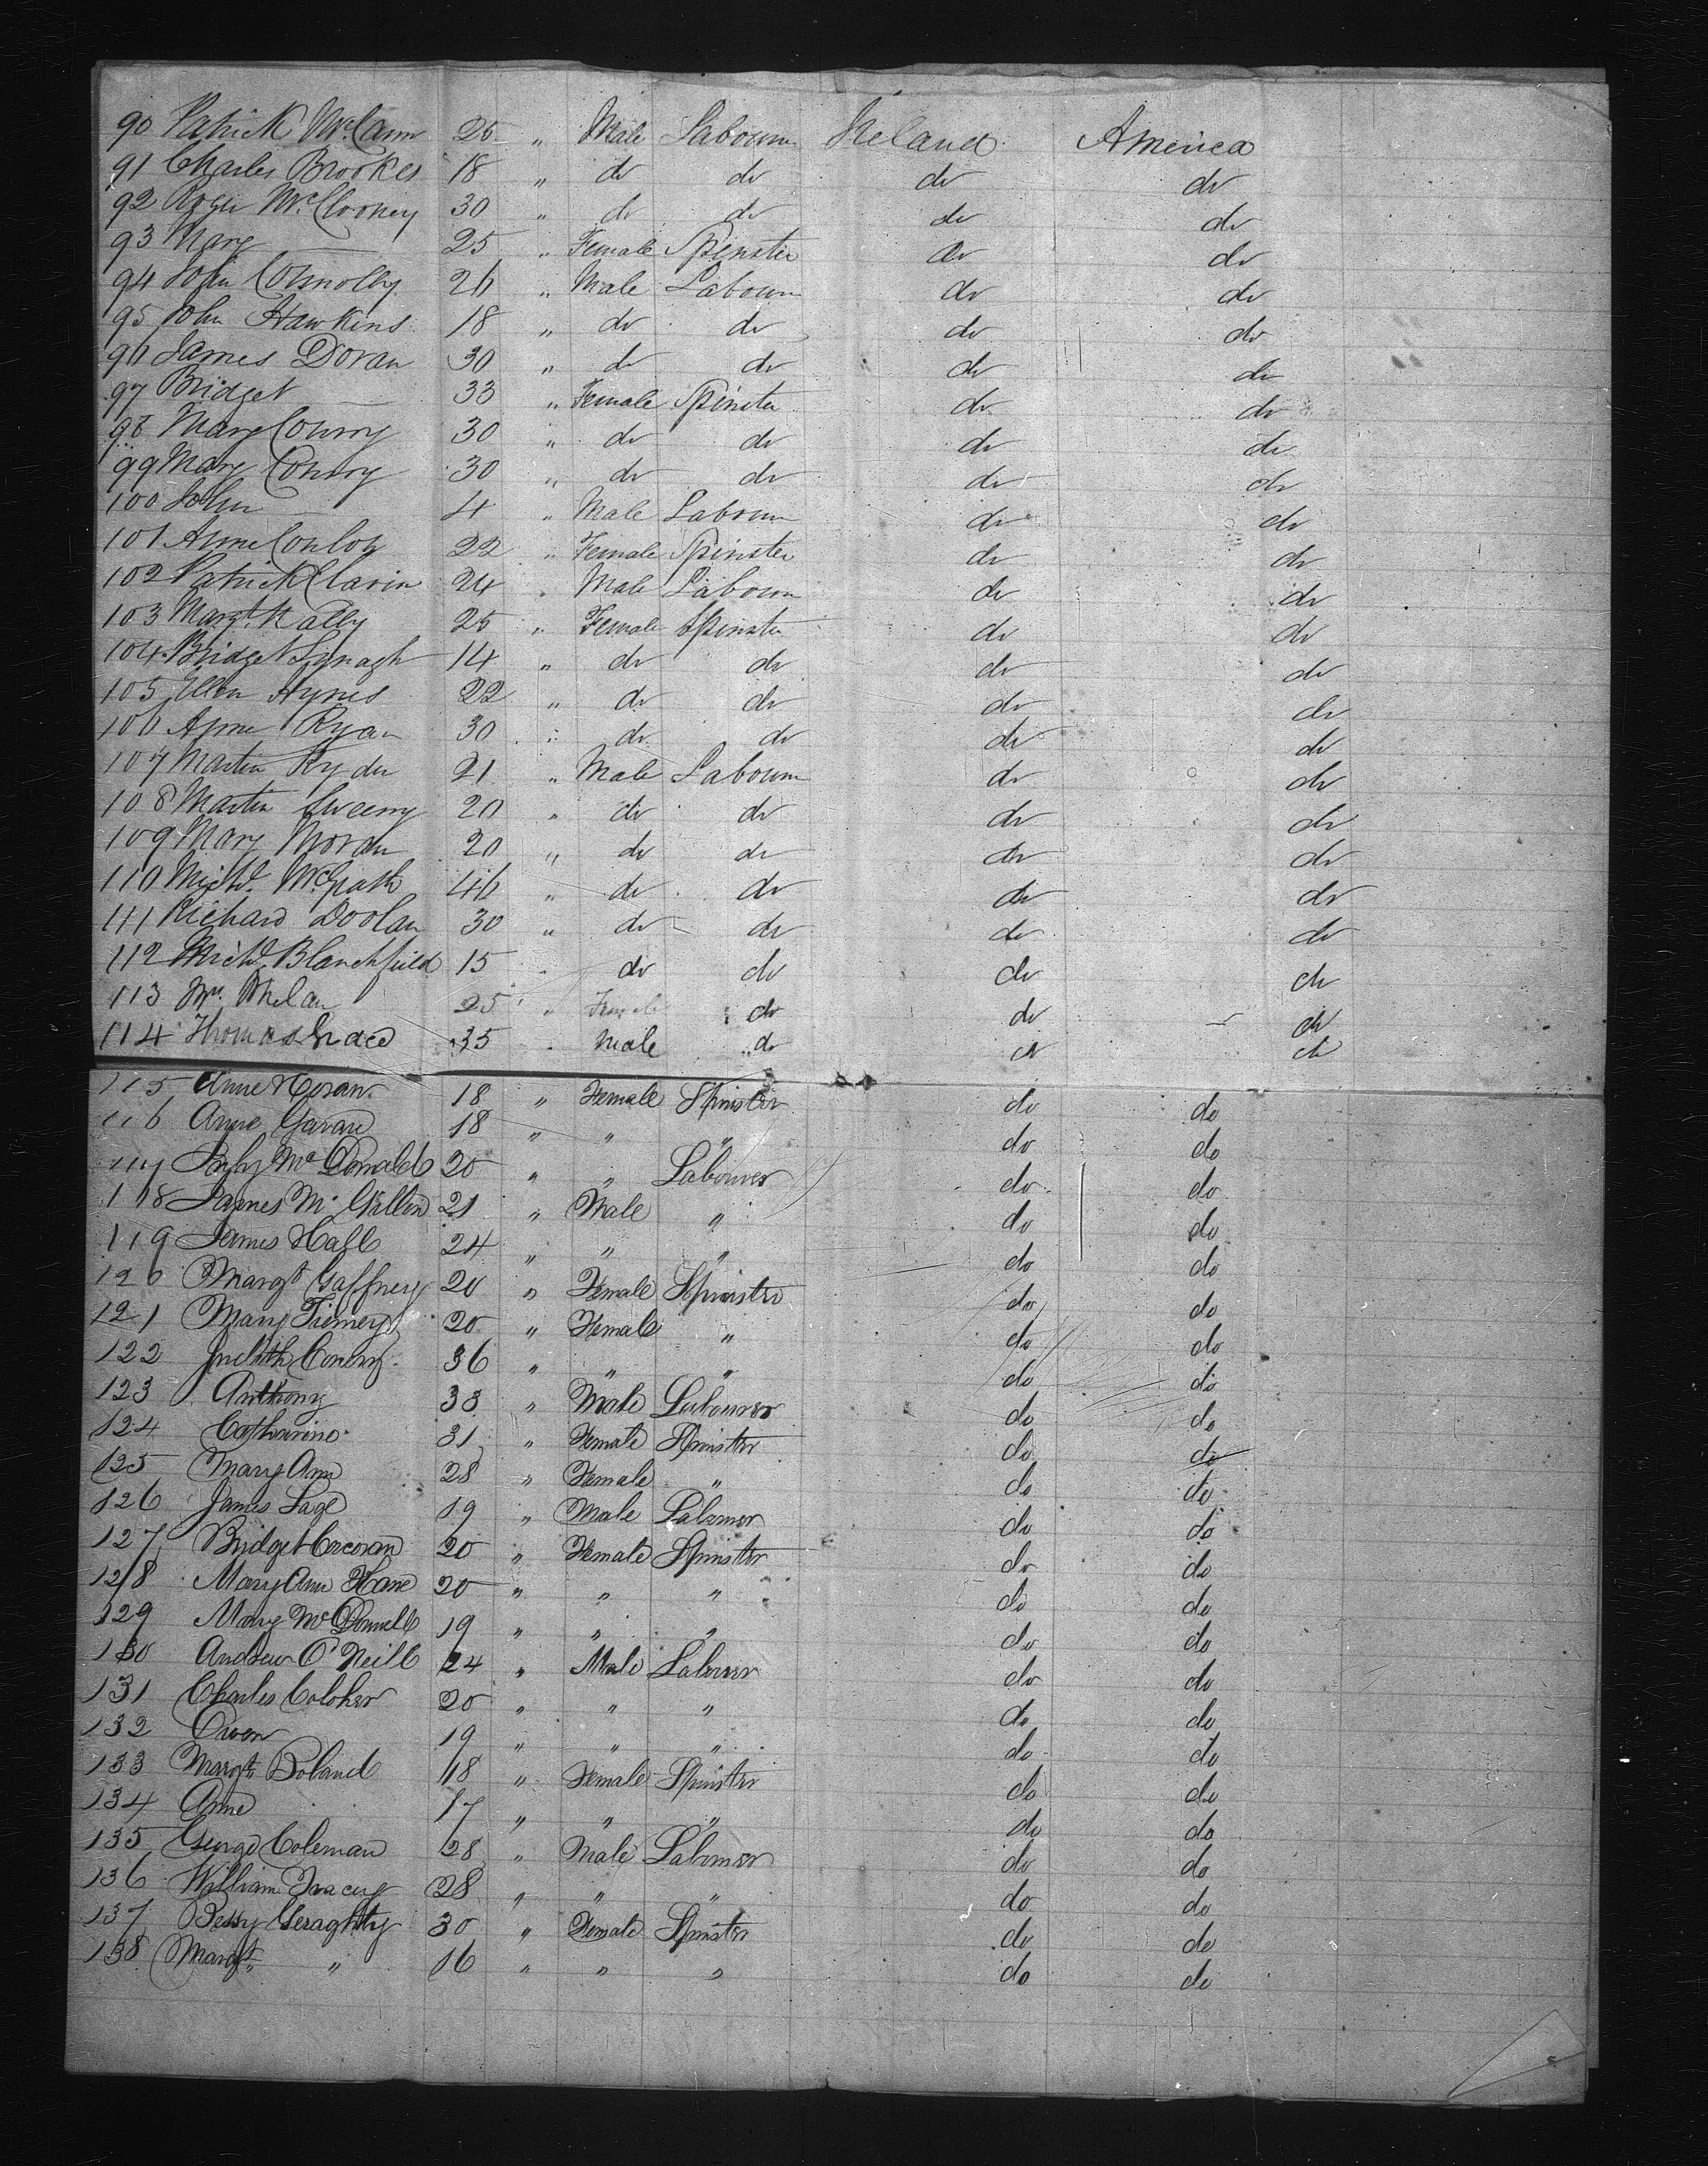 90 Patrick McCann 25 " Male Labourer Ireland America
91 Charles Brookes 18 " do do do do
92 Roger McClooney 30 " do do do do
93 Mary — 25 " Female Spinster do do
94 John Connolly 26 " Male Labourer do do
95 John Hawkins 18 " do do do do
96 James Doran 30 " do do do do
97 Bridget — 33 " Female Spinster do do
98 Mary Conry 30 " do do do do
99 Mary Conry 30 " do do do do
100 John — 4 " Male Labourer do do
101 Anne Conlon 22 " Female Spinster do do
102 Patrick Clavin 24 " Male Labourer do do
103 Margt. Kally 25 " Female Spinster do do
104 Bridget Lynagh 14 " do do do do
105 Ellen Hynes 22 " do do do do
106 Anne Ryan 30 " do do do do
107 Martin Ryder 21 " Male Labourer do do
108 Martin Sweeny 20 " do do do do
109 Mary Moran 20 " do do do do
110 Michl. McGrath 46 " do do do do
111 Richard Doolan 30 " do do do do
112 Michl. Blanchfield 15 " do do do do
113 Phelan 25 " Female do do do
114 Thomas Grace 35 " Male do do do
115 Anne Horan 18 " Female Spinster do do
116 Anne Gavan 18 " " " do do
117 McDonald 20 " " Labourer do do
118 James McGillen 21 " Male " do do
119 James Hall 24 " " " do do
120 Margt Gaffney 20 " Female Spinster do do
121 Mary Tierney 20 " Female " do do
122 Judith Conery 36 " " " do do
123 Anthony 33 " Male Labourer do do
124 Catharine 31 " Female Spinster do do
125 Mary Ann 28 " Female " do do
126 James Sage 19 " Male Labourer do do
127 Bridget Corcoran 20 " Female Spinster do do
128 Mary Ann Kane 20 " " " do do
129 Mary McDonnell 19 " " " do do
130 Andrew O'Neill 24 " Male Labourer do do
131 Charles Coloher 20 " " " do do
132 Owen 19 " " " do do
133 Margt. Boland 18 " Female Spinster do do
134 Anne 17 " " " do do
135 George Coleman 28 " Male Labourer do do
136 William Tracey 28 " " " do do
137 Bessy Geraghty 30 " Female Spinster do do
138 Margt. " 16 " " " do do